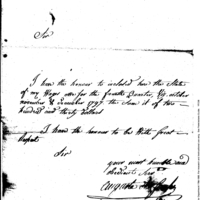 Sir
I have the honour to inclosed here the State
of my Wages &c for the fourth Quarter, Viz. october
november & december 1797 the Sum it of two
hundred and thirty dollars
I have the honour to be With great
Respect
Sir
your most humble and
obedient Serv